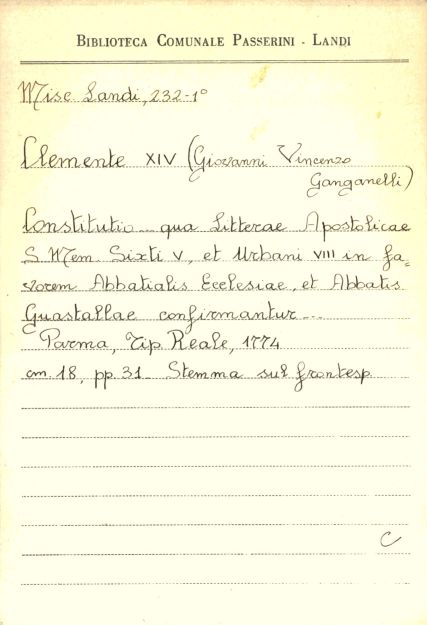 BIBLIOTECA COMUNALE PASSERINI - LANDI
Misc Landi, 232-1°
Clemente XIV (Giovanni Vincenzo
Ganganelli)
Constitutio... qua Litterae Apostolicae
S. Mem. Sixti V, et Urbani VIII in fa=
vorem Abbatialis Ecclesiae, et Abbatis
Guastallae confirmantur...
Parma, Tip. Reale, 1774
cm. 18, pp. 31. Stemma sul frontesp.
C